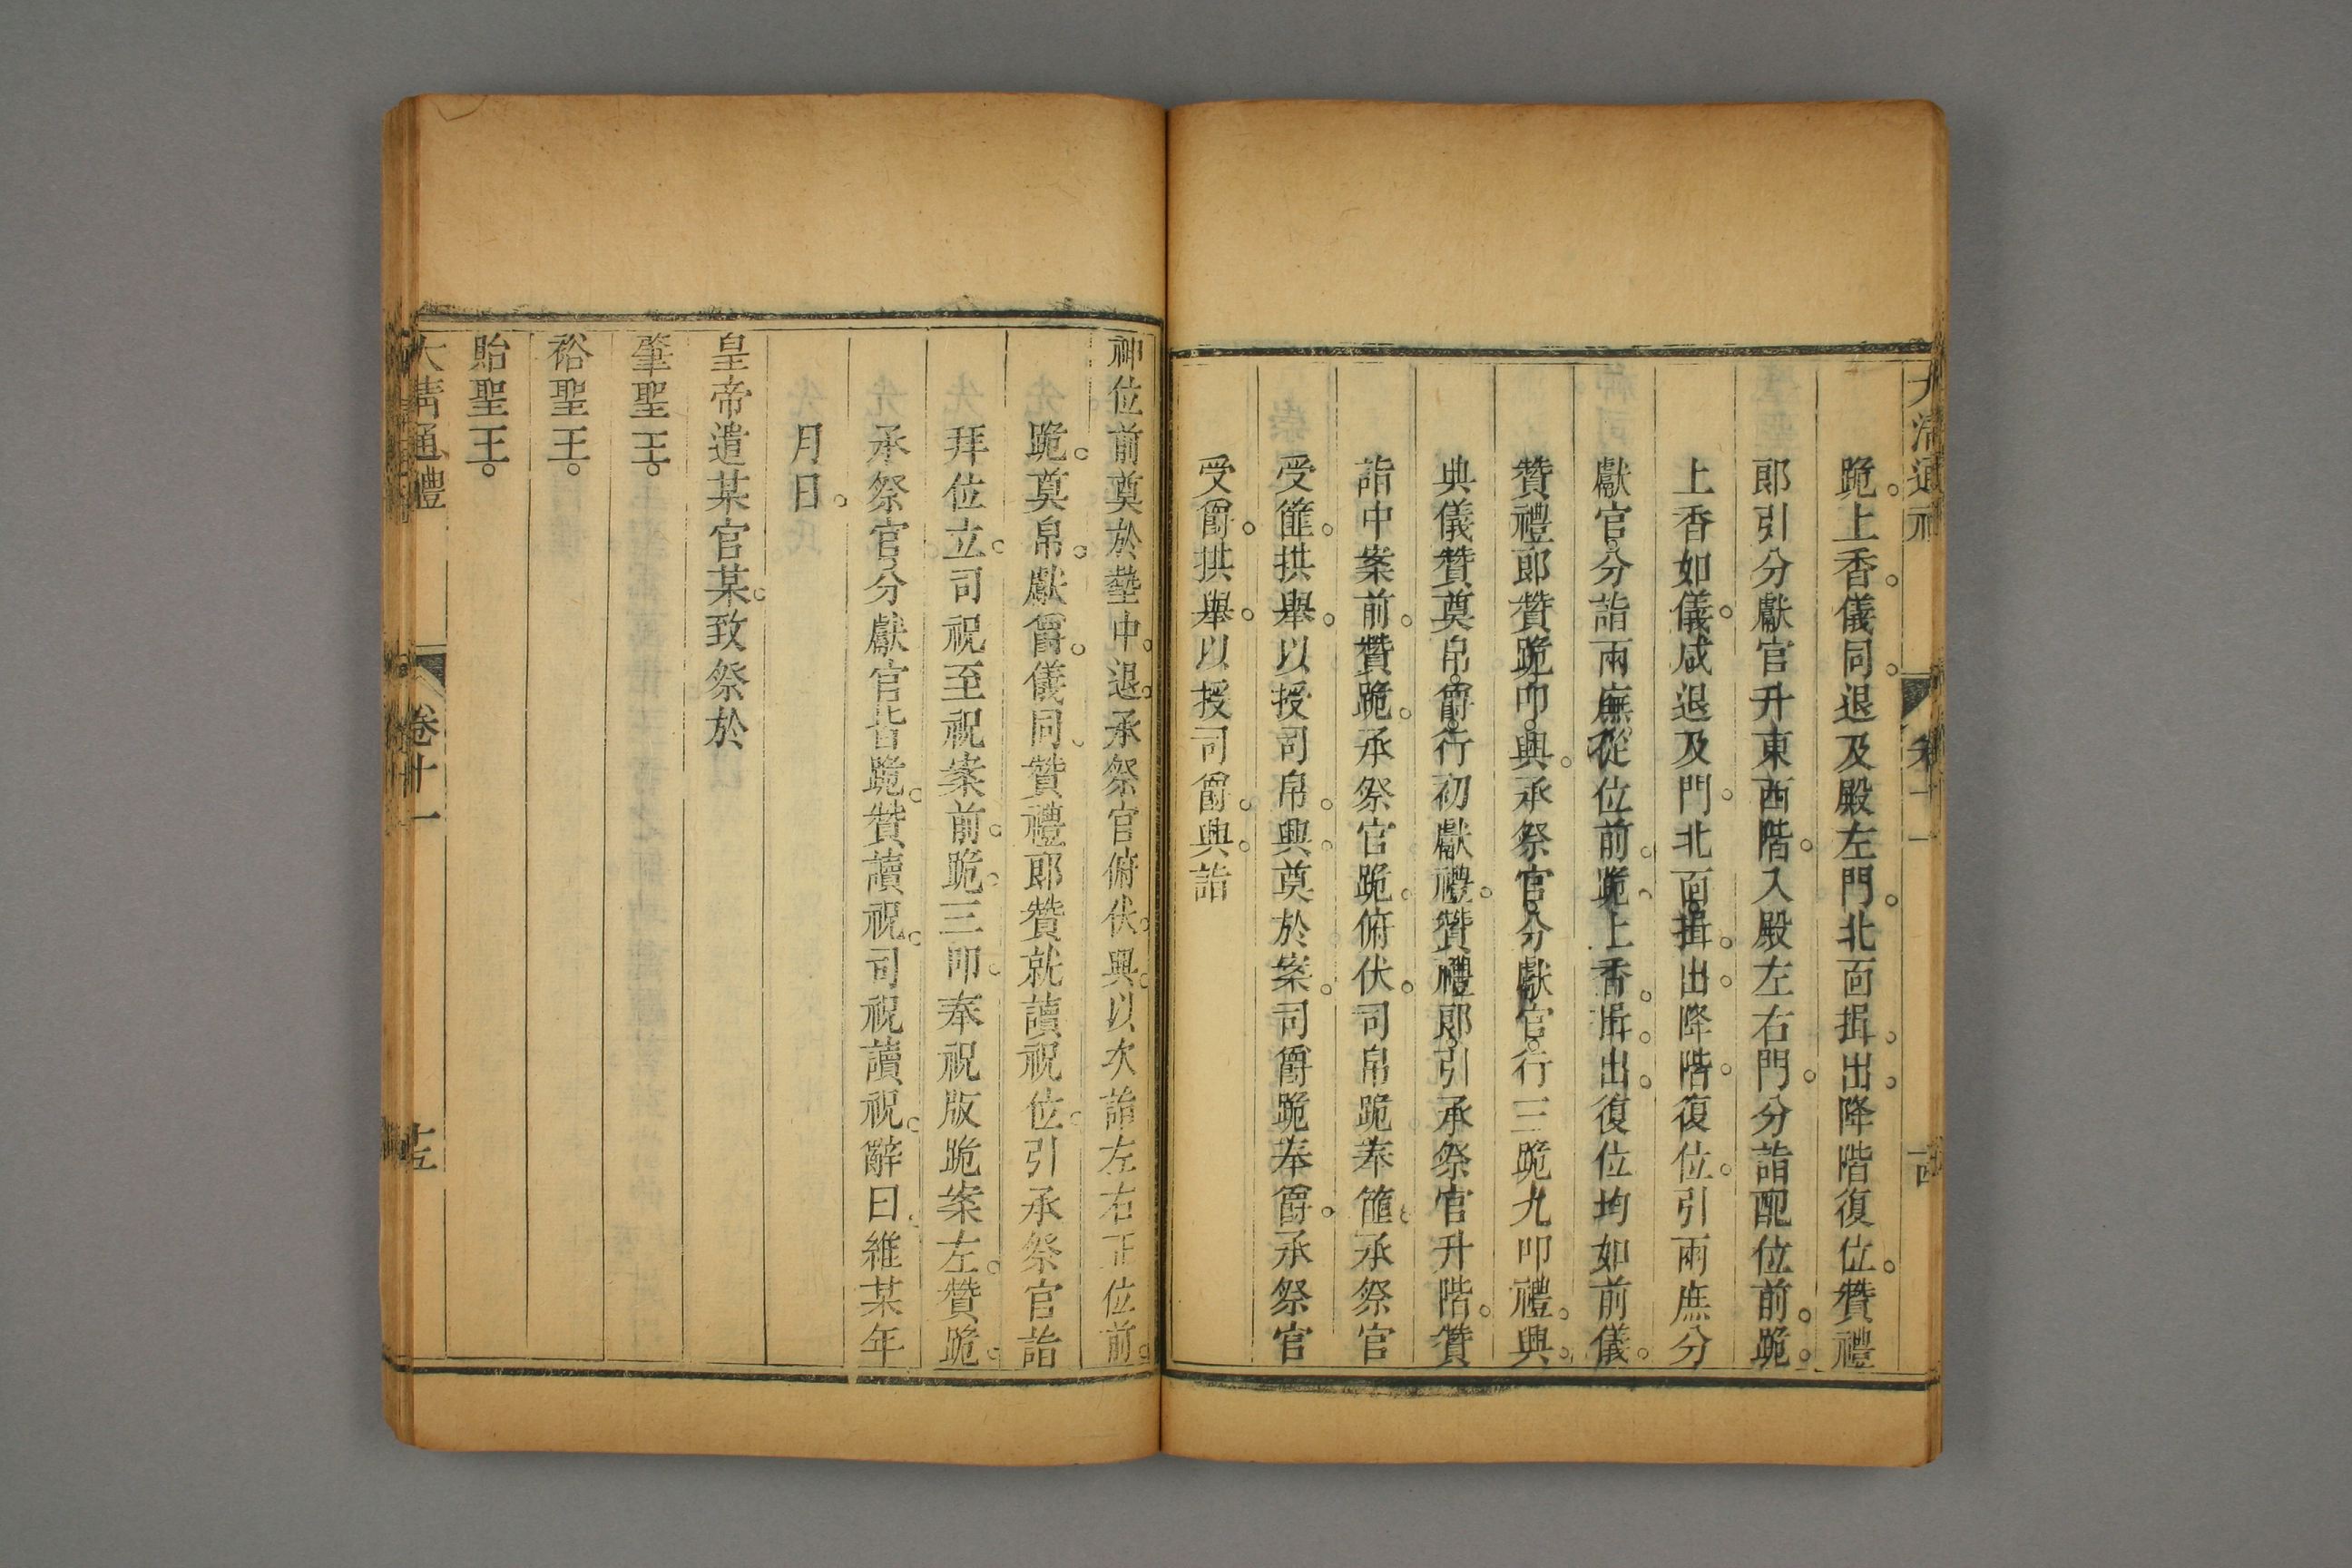 大清通禮 卷十一 十四
跪。上香。儀同。退及殿左門。北面揖。出。降階復位。贊禮
郎引分獻官升東西階。入殿左右門。分詣配位前。跪。
上香如儀。咸退及門。北面揖。出。降階。復位。引兩廡分
獻官。分詣兩廡從位前。跪。上香。揖。出。復位均如前儀。
贊禮郎贊跪叩。興。承祭官。分獻官。行三跪九叩禮。興。
典儀贊奠帛。爵。行初獻禮。贊禮郎。引承祭官升階。贊
詣中案前。贊跪。承祭官跪。俯伏。司帛跪奉篚。承祭官
受篚。拱舉。以授司帛。興。奠於案。司爵跪奉爵。承祭官
受爵。拱舉。以授司爵。興。詣
神位前奠於墊中。退。承祭官俯伏。興。以次詣左右正位前。
跪。奠帛。獻爵。儀同。贊禮郎贊就讀祝位。引承祭官詣
拜位立。司祝至祝案前。跪。三叩。奉祝版跪案左。贊跪。
承祭官。分獻官皆跪。贊讀祝。司祝讀祝。辭曰。維某年
月日。
皇帝遣某官某。致祭於
肇聖王。
裕聖王。
貽聖王。
大清通禮 卷十一 十五